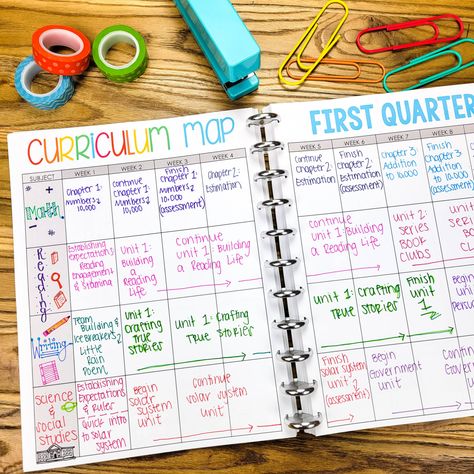 CURRICULUM MAP
FIRST QUARTER
SUBJECT
WEEK 1
WEEK 2
WEEK 3
WEEK 4
WEEK 5
WEEK 6
WEEK 7
WEEK 8
Math
Chapter 1:
Numbers 2
10,000
continue
chapter 1:
Numbers 2
10,000
Finish
Chapter 1:
Numbers 2
10,000
(assessment)
Chapter 2:
Estimation
Continue
Chapter 2:
Estimation
Finish
Chapter 2:
Estimation
(assessment)
Chapter 3:
Addition
to 10,000
Chapter 3
Addition
to 10,000
Reading
Establishing
Expectations
Reading
Engagement
& Stamina
Unit 1:
Building
a Reading
Life
continue
Unit 1: Building
a Reading Life
continue
Unit 1: Building
a Reading Life
Unit 2:
series
Book
Clubs
Writing
Team
Building &
Ice Breakers
Little
Rain
Poem
Unit 1:
Crafting
True
Stories
Unit 1: Crafting
True Stories
Unit 1: Crafting
True Stories
Finish
Unit
1
Science
& social
studies
Establishing
Expectations
& Rules
Quick intro
to solar
system
Begin
solar
system
unit
continue
solar system
unit
Finish
solar system
unit
(assessment)
Begin
Government
unit
Continue
Government
unit